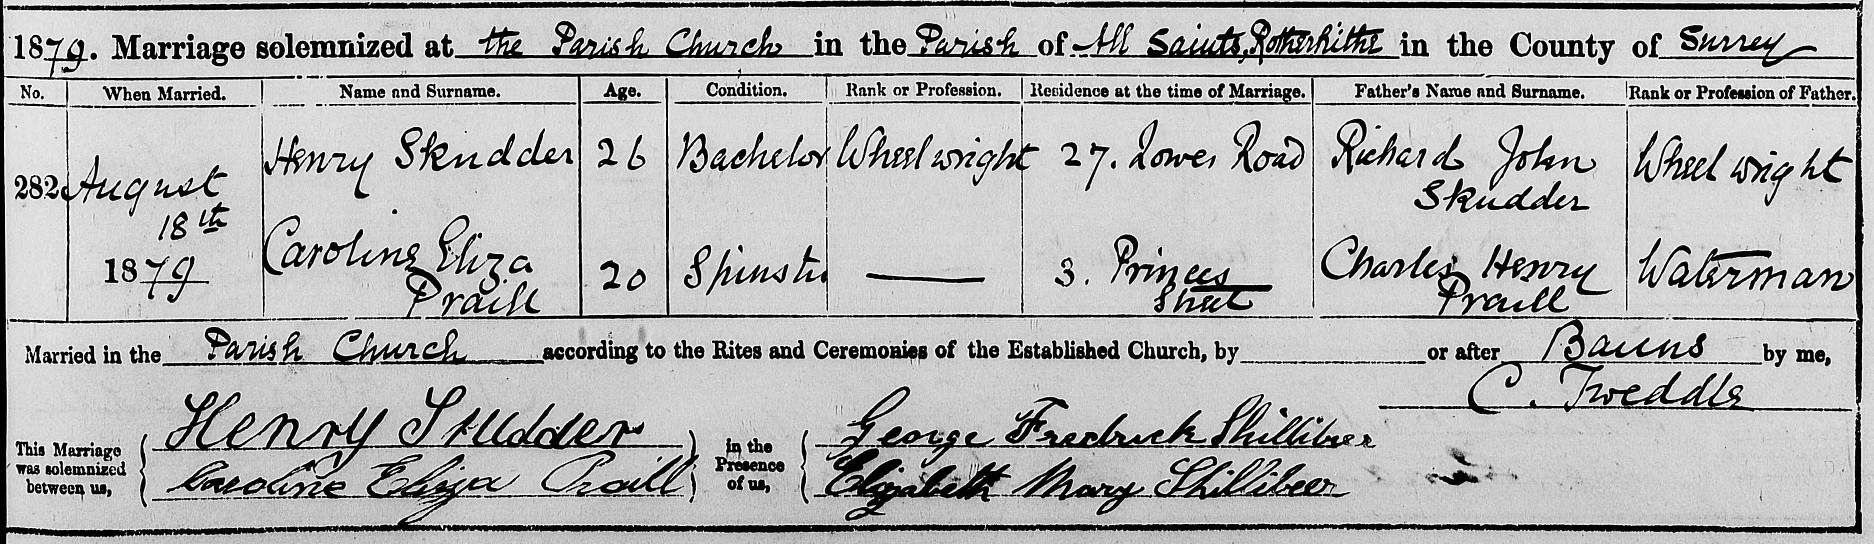 1879. Marriage solemnized at the Parish Church in the Parish of All Saints, Rotherhithe in the County of Surrey
No. When Married. Name and Surname. Age. Condition. Rank or Profession. Residence at the time of Marriage. Father's Name and Surname. Rank or Profession of Father.
282 August 18th 1879
Henry Skudder 26 Bachelor Wheelwright 27. Lower Road Richard John Skudder Wheelwright
Caroline Eliza Praill 20 Spinster — 3. Princes Street Charles Henry Praill Waterman
Married in the Parish Church according to the Rites and Ceremonies of the Established Church, by or after Banns by me,
C. Tweddle
This Marriage was solemnized between us, Henry Skudder Caroline Eliza Praill
in the Presence of us, George Fredrick Shillibeer Elizabeth Mary Shillibeer